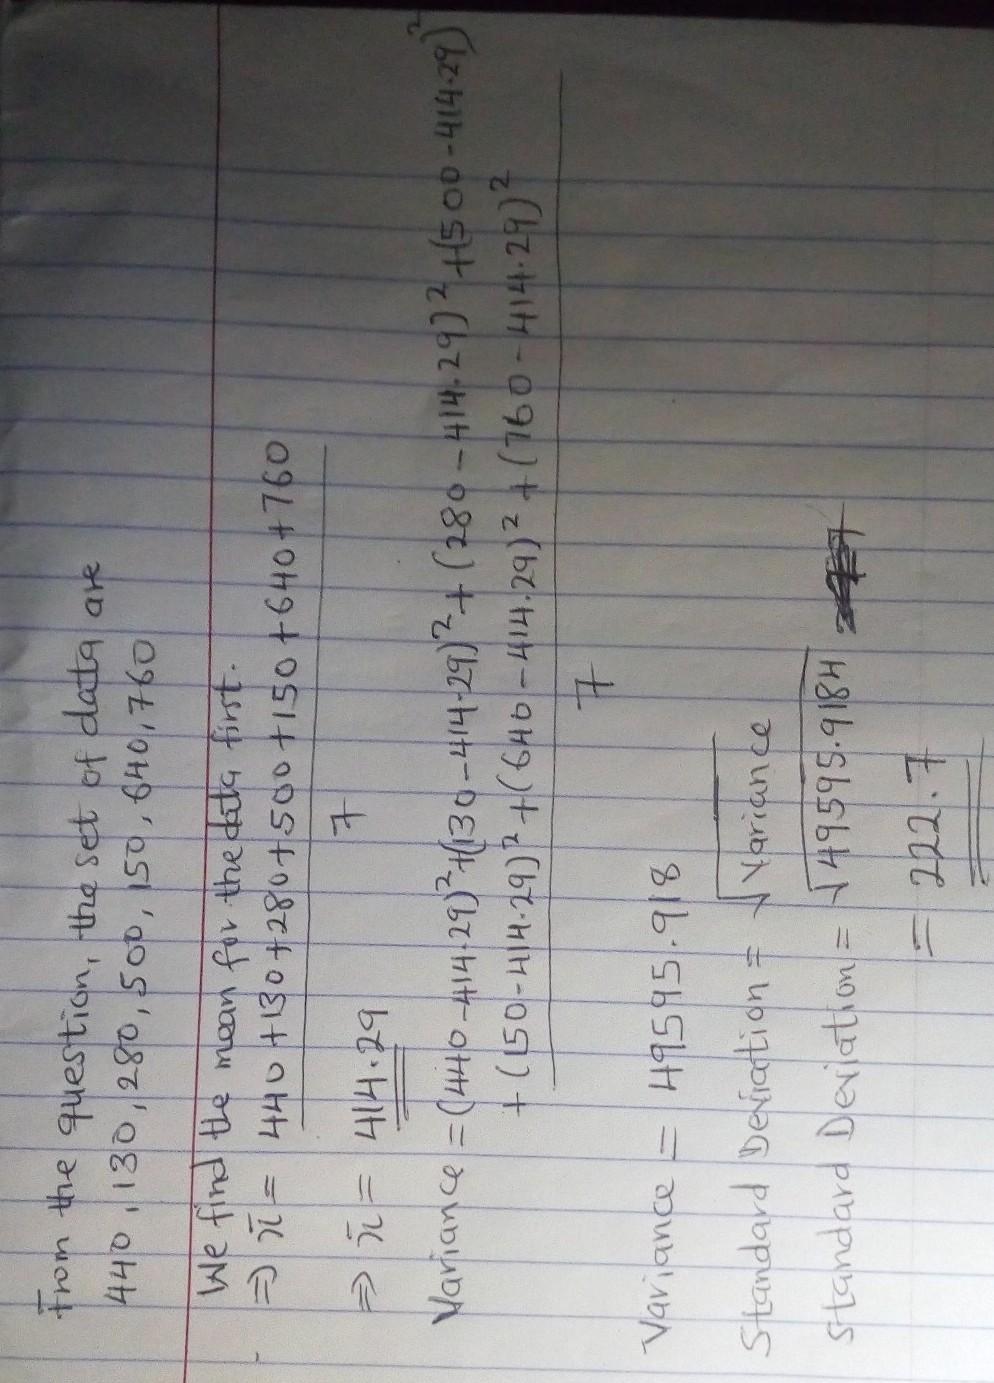 From the question, the set of data are
440, 130, 280, 500, 150, 640, 760
We find the mean for the data first.
⇒ x̄ = 440 + 130 + 280 + 500 + 150 + 640 + 760
7
⇒ x̄ = 414.29
Variance = (440 - 414.29)² + (130 - 414.29)² + (280 - 414.29)² + (500 - 414.29)²
+ (150 - 414.29)² + (640 - 414.29)² + (760 - 414.29)²
7
Variance = 49595.918
Standard Deviation = √Variance
Standard Deviation = √49595.9184
= 222.7